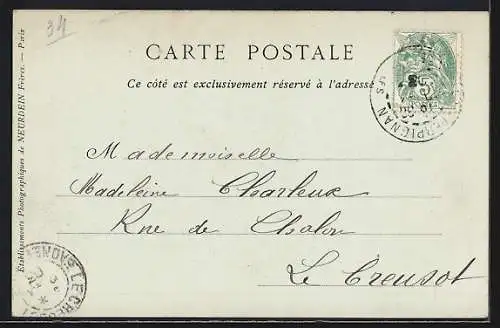 34
CARTE POSTALE
Ce côté est exclusivement réservé à l'adresse
PERPIGNAN
Mademoiselle
Madeleine Charleux
Rue de Chalon
Le Creusot
Etablissements Photographiques de NEURDEIN Frères. — Paris
LE CREUSOT